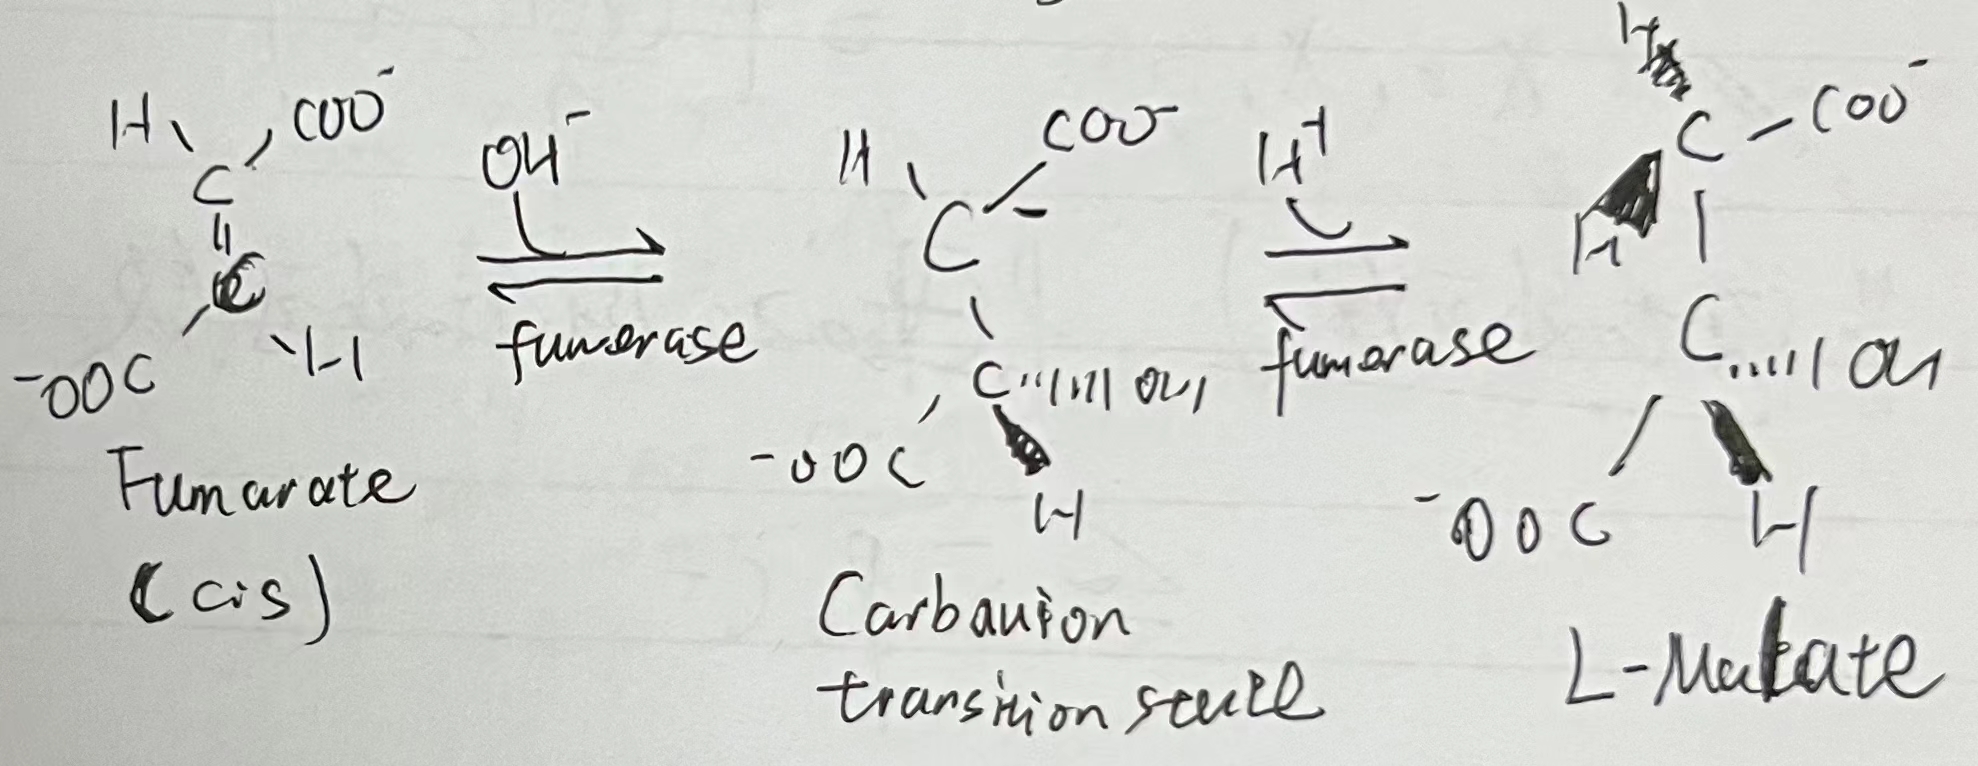 H COO⁻
C
=
C
⁻OOC H
Fumarate
(cis)
OH⁻
fumerase
H COO⁻
C⁻
C OH
⁻OOC H
Carbanion
transition state
H⁺
fumerase
H
C COO⁻
H
C OH
⁻OOC H
L-Malate